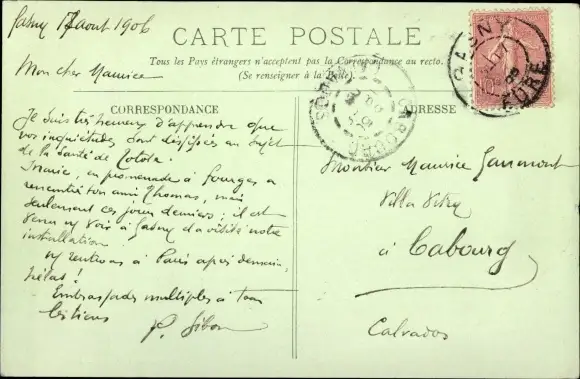 Gasny 17 aout 1906
CARTE POSTALE
Tous les Pays étrangers n'acceptent pas la Correspondance au recto.
(Se renseigner à la Poste).
Mon cher Maurice
CORRESPONDANCE
Je suis très heureux d'apprendre que
vos inquiétudes sont dissipées au sujet
de la santé de Lolota.
en promenade à Gourges a
rencontré ton ami Thomas, mais
seulement ces jours derniers ; il est
venu voir à Gasny et a visité notre
installation
rentrons à Paris après demain,
hélas !
Embrassades multiples à tous
les tiens
P. Sibon
ADRESSE
Monsieur Maurice Gaumont
Villa
à Cabourg
Calvados
GASNY
EURE
CABOURG